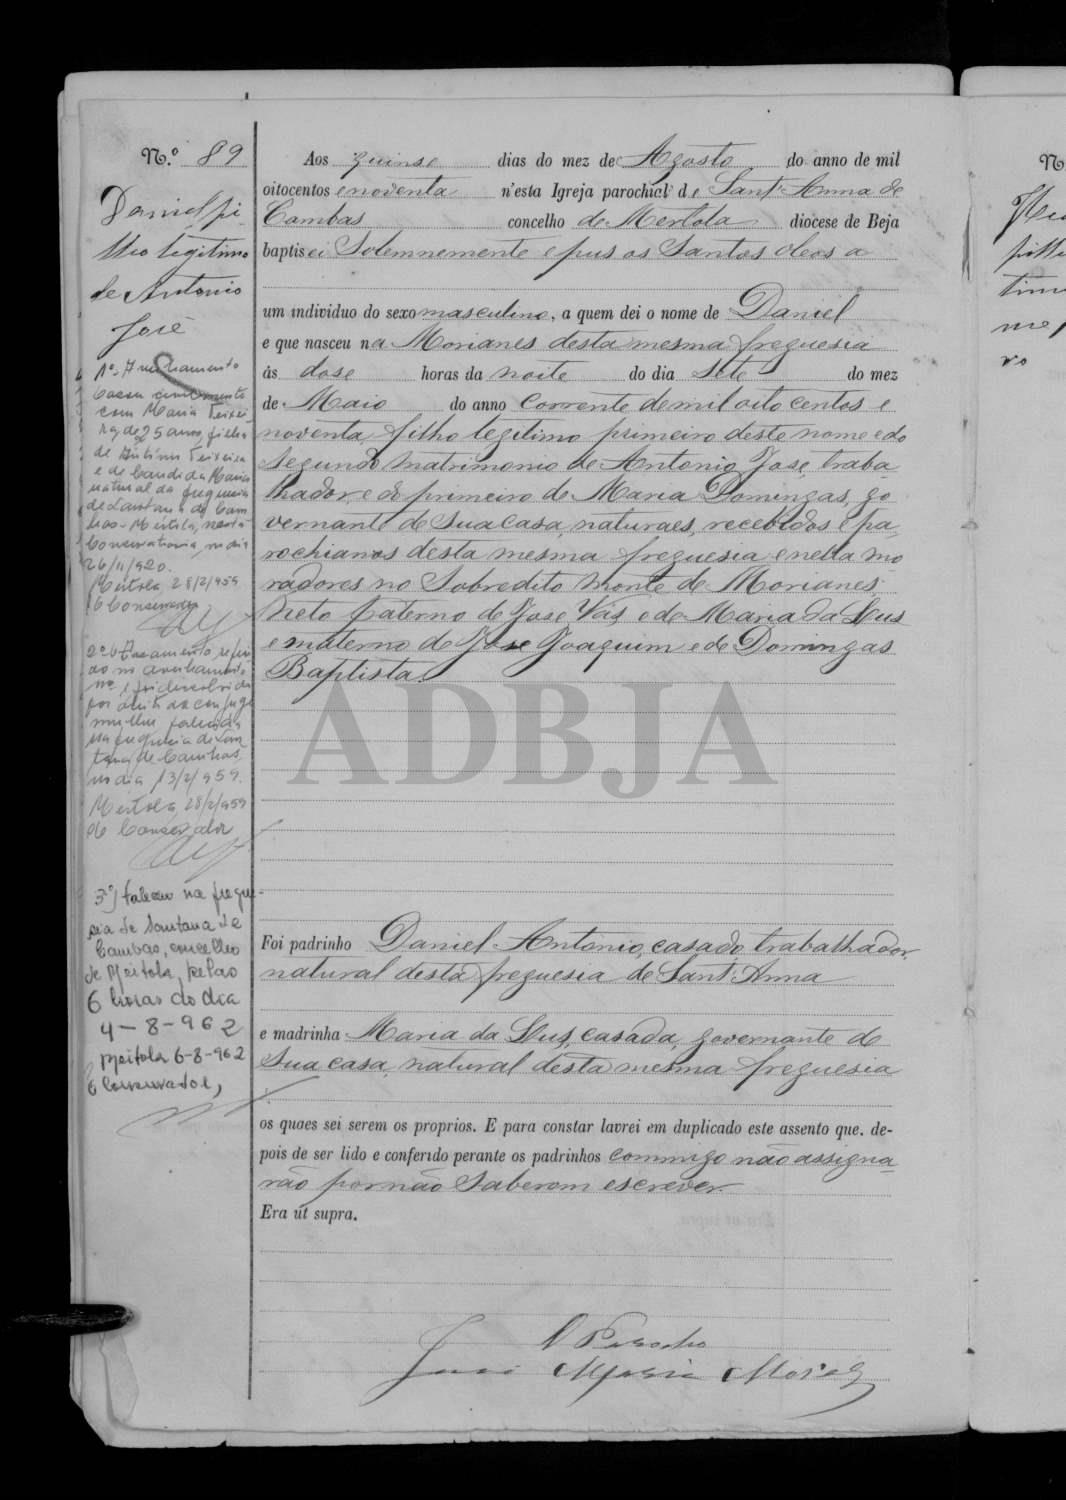 N.º 89
Daniel, fi-
lho legitimo
de Antonio
José
1º - Averbamento
Casou
com Maria Teixei-
ra, de 25 anos, filha
de Teixeira
e de Candida Maria
natural da freguesia
de Santana de Cam-
bas - Mértola, nesta
Conservatoria, no dia
26/11/920.
Mértola, 28/2/959
O Conservador
2º O casamento referi-
do no averbamento
nº 1 foi dissolvido
por óbito da conjuge
mulher falecida
na freguesia de San-
tana de Cambas,
no dia 13/2/959.
Mértola, 28/2/959
O Conservador
3º) Faleceu na fregue-
sia de Santana de
Cambas, concelho
de Mértola, pelas
6 horas do dia
4-8-962
Mértola 6-8-962
O Conservador,
Aos quinse dias do mez de Agosto do anno de mil
oitocentos e noventa n'esta Igreja parochial de Sant'Anna de
Cambas concelho de Mertola diocese de Beja
baptisei Solemnemente e pus os Santos oleos a
um individuo do sexo masculino, a quem dei o nome de Daniel
e que nasceu na Morianes desta mesma freguesia
às dose horas da noite do dia Sete do mez
de Maio do anno corrente de mil oito centos e
noventa, filho legitimo primeiro deste nome e do
segundo matrimonio de Antonio José, traba-
lhador, e do primeiro de Maria Domingas, go-
vernante de sua casa, naturaes, recebidos e pa-
rochianos desta mesma freguesia e nella mo-
radores no Sobredito monte de Morianes;
Neto paterno de José Vás e de Maria da Lus
e materno de José Joaquim e de Domingas
Baptista.
ADBJA
Foi padrinho Daniel Antonio, casado, trabalhador,
natural desta freguesia de Sant'Anna
e madrinha Maria da Lus, casada, governante de
sua casa, natural desta mesma freguesia
os quaes sei serem os proprios. E para constar lavrei em duplicado este assento que, de-
pois de ser lido e conferido perante os padrinhos commigo não assigna-
rão por não saberem escrever.
Era út supra.
O Parocho
José Maria
Nº
tim
ro